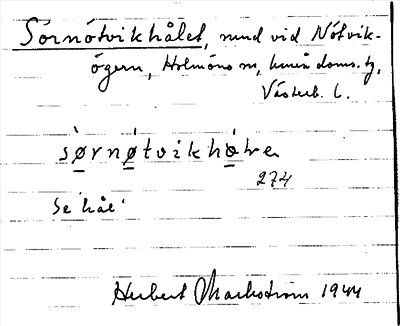 Sörnötvikhålet, sund vid Nötvik-
ögern, Holmöns sn, Umeå doms. tg,
Västerb. l.
sørnøtvikhøLre
274
Se hål
Herbert Markström 1944